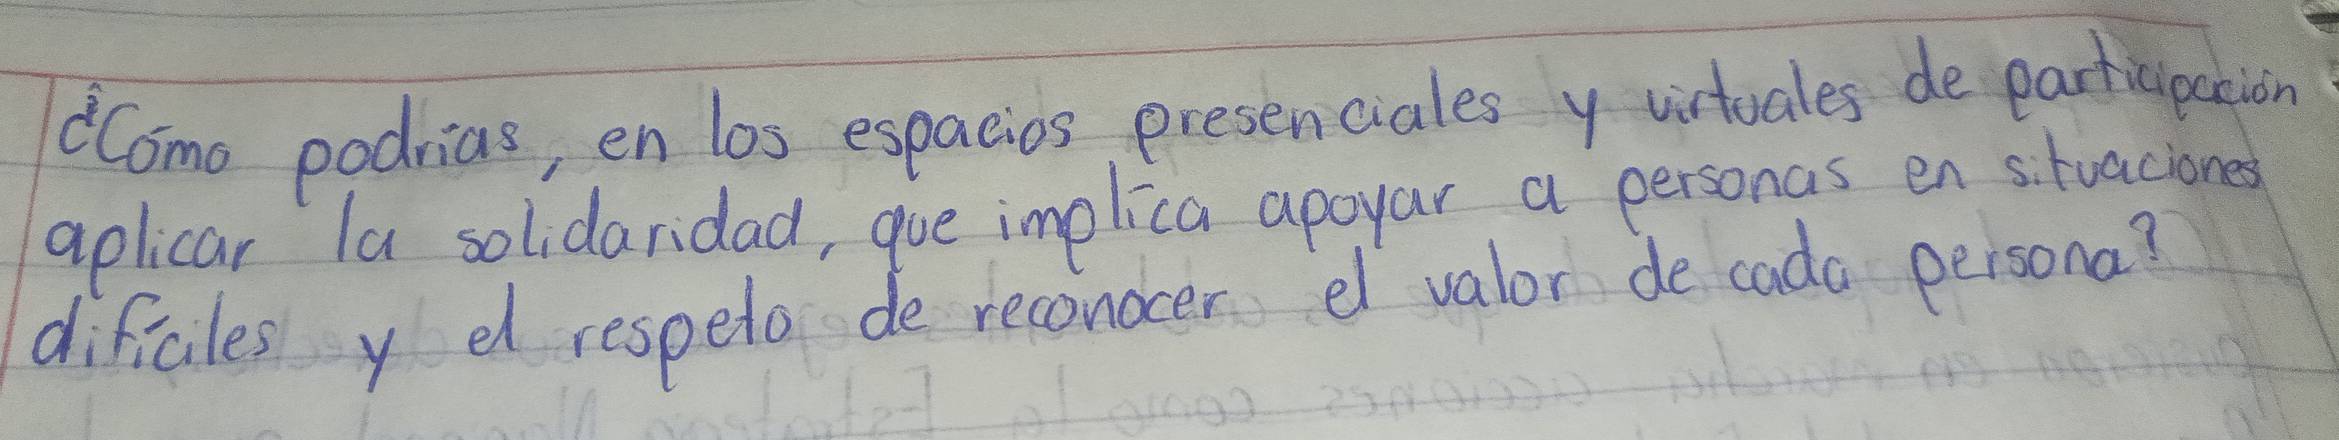 ¿Cómo podrías, en los espacios presenciales y virtuales de participación
aplicar la solidaridad, que implica apoyar a personas en situaciones
difíciles y el respeto de reconocer el valor de cada persona?